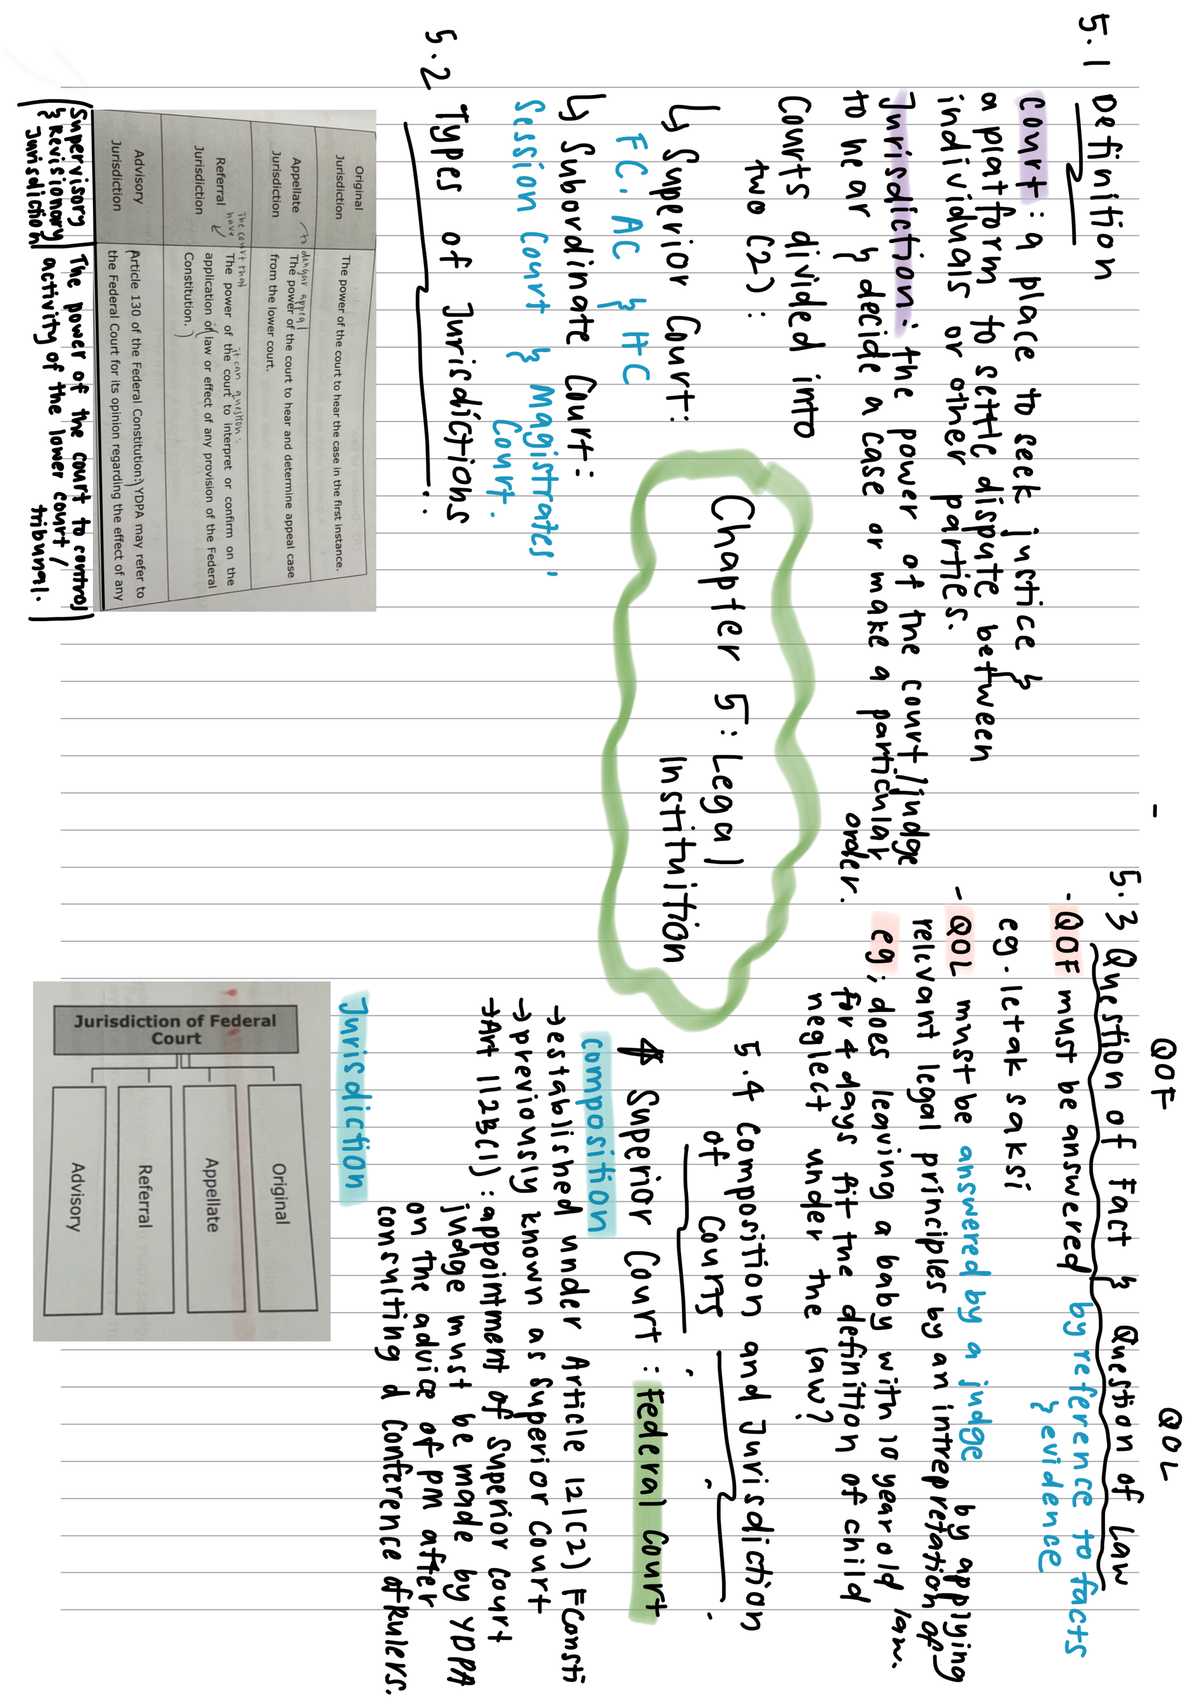 Chapter 5: Legal
Instituition
5.1 Definition
Court: a place to seek justice &
a platform to settle dispute between
individuals or other parties.
Jurisdiction: the power of the court/judge
to hear & decide a case or make a particular
order.
Courts divided into
two (2):
↳ Superior Court:
FC, AC & HC
↳ Subordinate Court:
Session Court & Magistrates'
Court.
5.2 Types of Jurisdictions
Original
Jurisdiction
The power of the court to hear the case in the first instance.
Appellate
Jurisdiction
dengar appeal
The power of the court to hear and determine appeal case
from the lower court.
Referral
Jurisdiction
the court that
have
it can question.
The power of the court to interpret or confirm on the
application of law or effect of any provision of the Federal
Constitution.
Advisory
Jurisdiction
Article 130 of the Federal Constitution: YDPA may refer to
the Federal Court for its opinion regarding the effect of any
Supervisory
& Revisionary
Jurisdiction
The power of the court to control
activity of the lower court/
tribunal.
-
QOF
QOL
5.3 Question of Fact & Question of Law
- QOF must be answered by reference to facts
& evidence
eg. letak saksi
- QOL must be answered by a judge by applying
relevant legal principles by an intrepretation of
law.
eg; does leaving a baby with 10 year old
for 4 days fit the definition of child
neglect under the law?
5.4 Composition and Jurisdiction
of Courts
Superior Court: Federal Court
composition
→ established under Article 121(2) FConsti
→ previously known as Superior Court
→ Art 112B(1): appointment of Superior Court
judge must be made by YDPA
on the advice of pm after
consulting d Conference of Rulers.
Jurisdiction
Jurisdiction of Federal
Court
Original
Appellate
Referral
Advisory